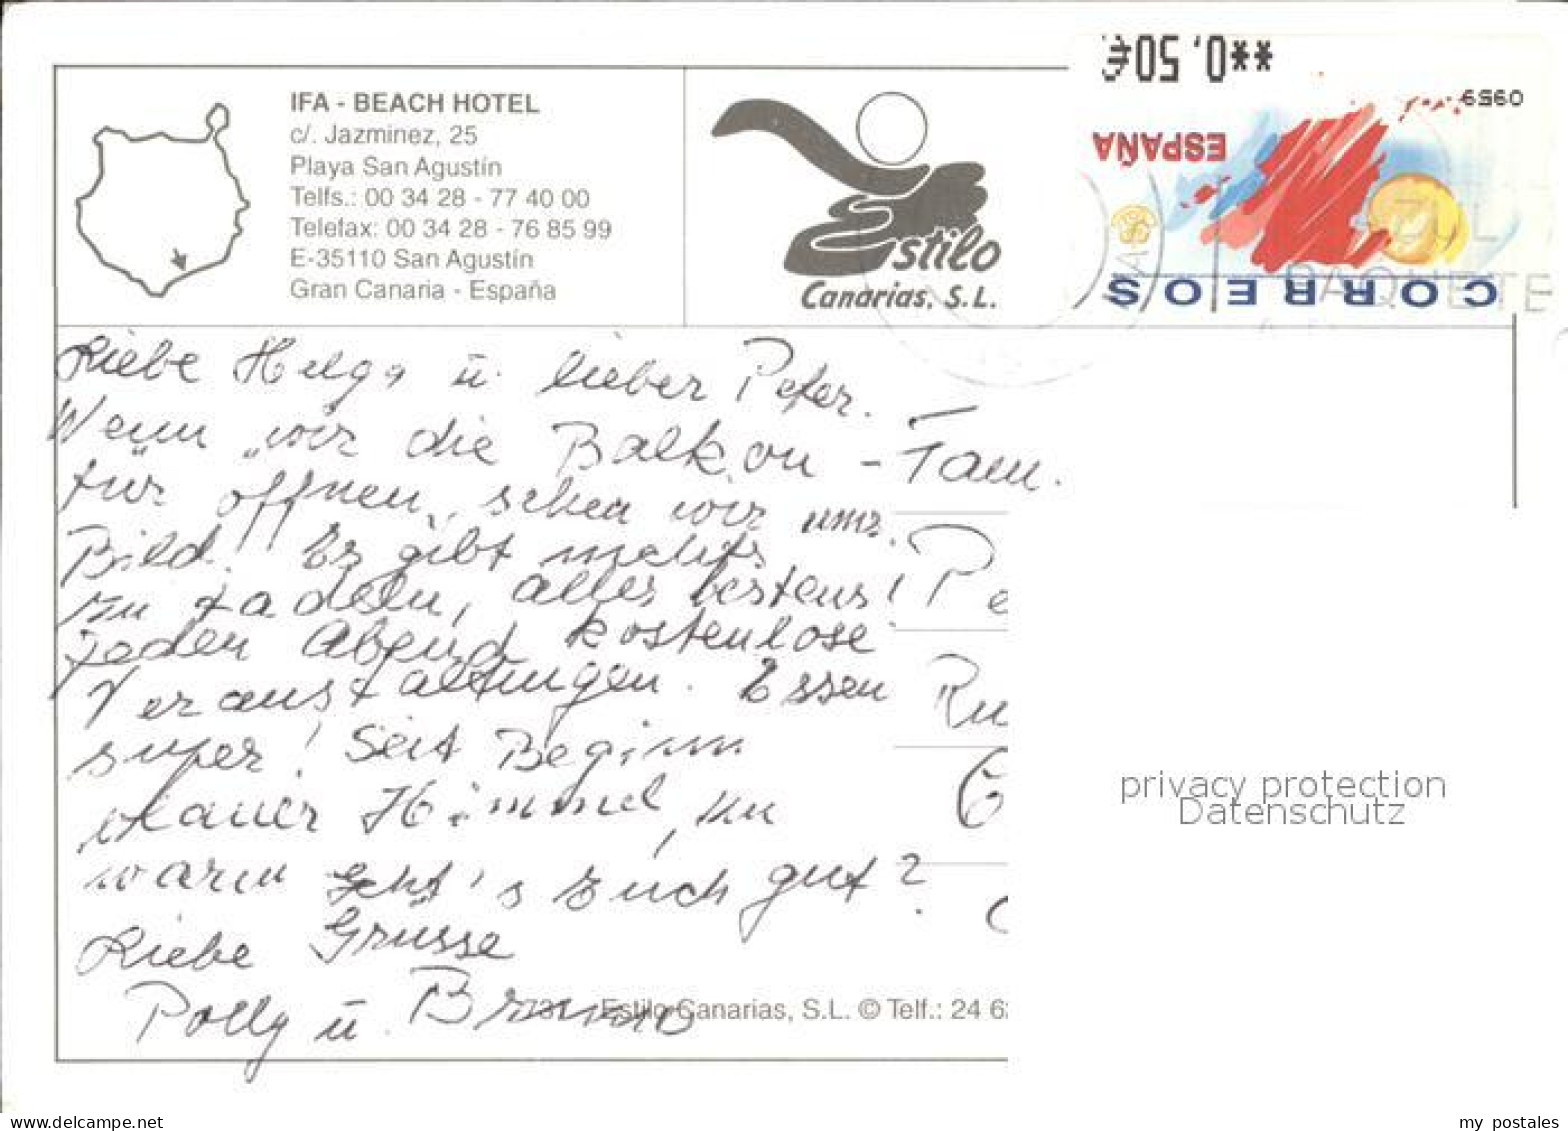 **0,50€
0959
ESPAÑA
CORREOS
PAQUETE
IFA - BEACH HOTEL
c/. Jazminez, 25
Playa San Agustín
Telfs.: 00 34 28 - 77 40 00
Telefax: 00 34 28 - 76 85 99
E-35110 San Agustín
Gran Canaria - España
Estilo
Canarias, S.L.
Liebe Helga u. lieber Peter.
Wenn wir die Balkon-
tür öffnen, sehen wir unser
Bild! Es gibt nichts
zu tadeln, alles bestens!
Jeden Abend kostenlose
Veranstaltungen. Essen
super! Seit Beginn
blauer Himmel, zu
warm Geht's Euch gut?
Liebe Grüsse
Polly u. Bruno
Fam.
Pe
Ru
Estilo Canarias, S.L. © Telf.: 24 62
privacy protection
Datenschutz
www.delcampe.net
my_postales